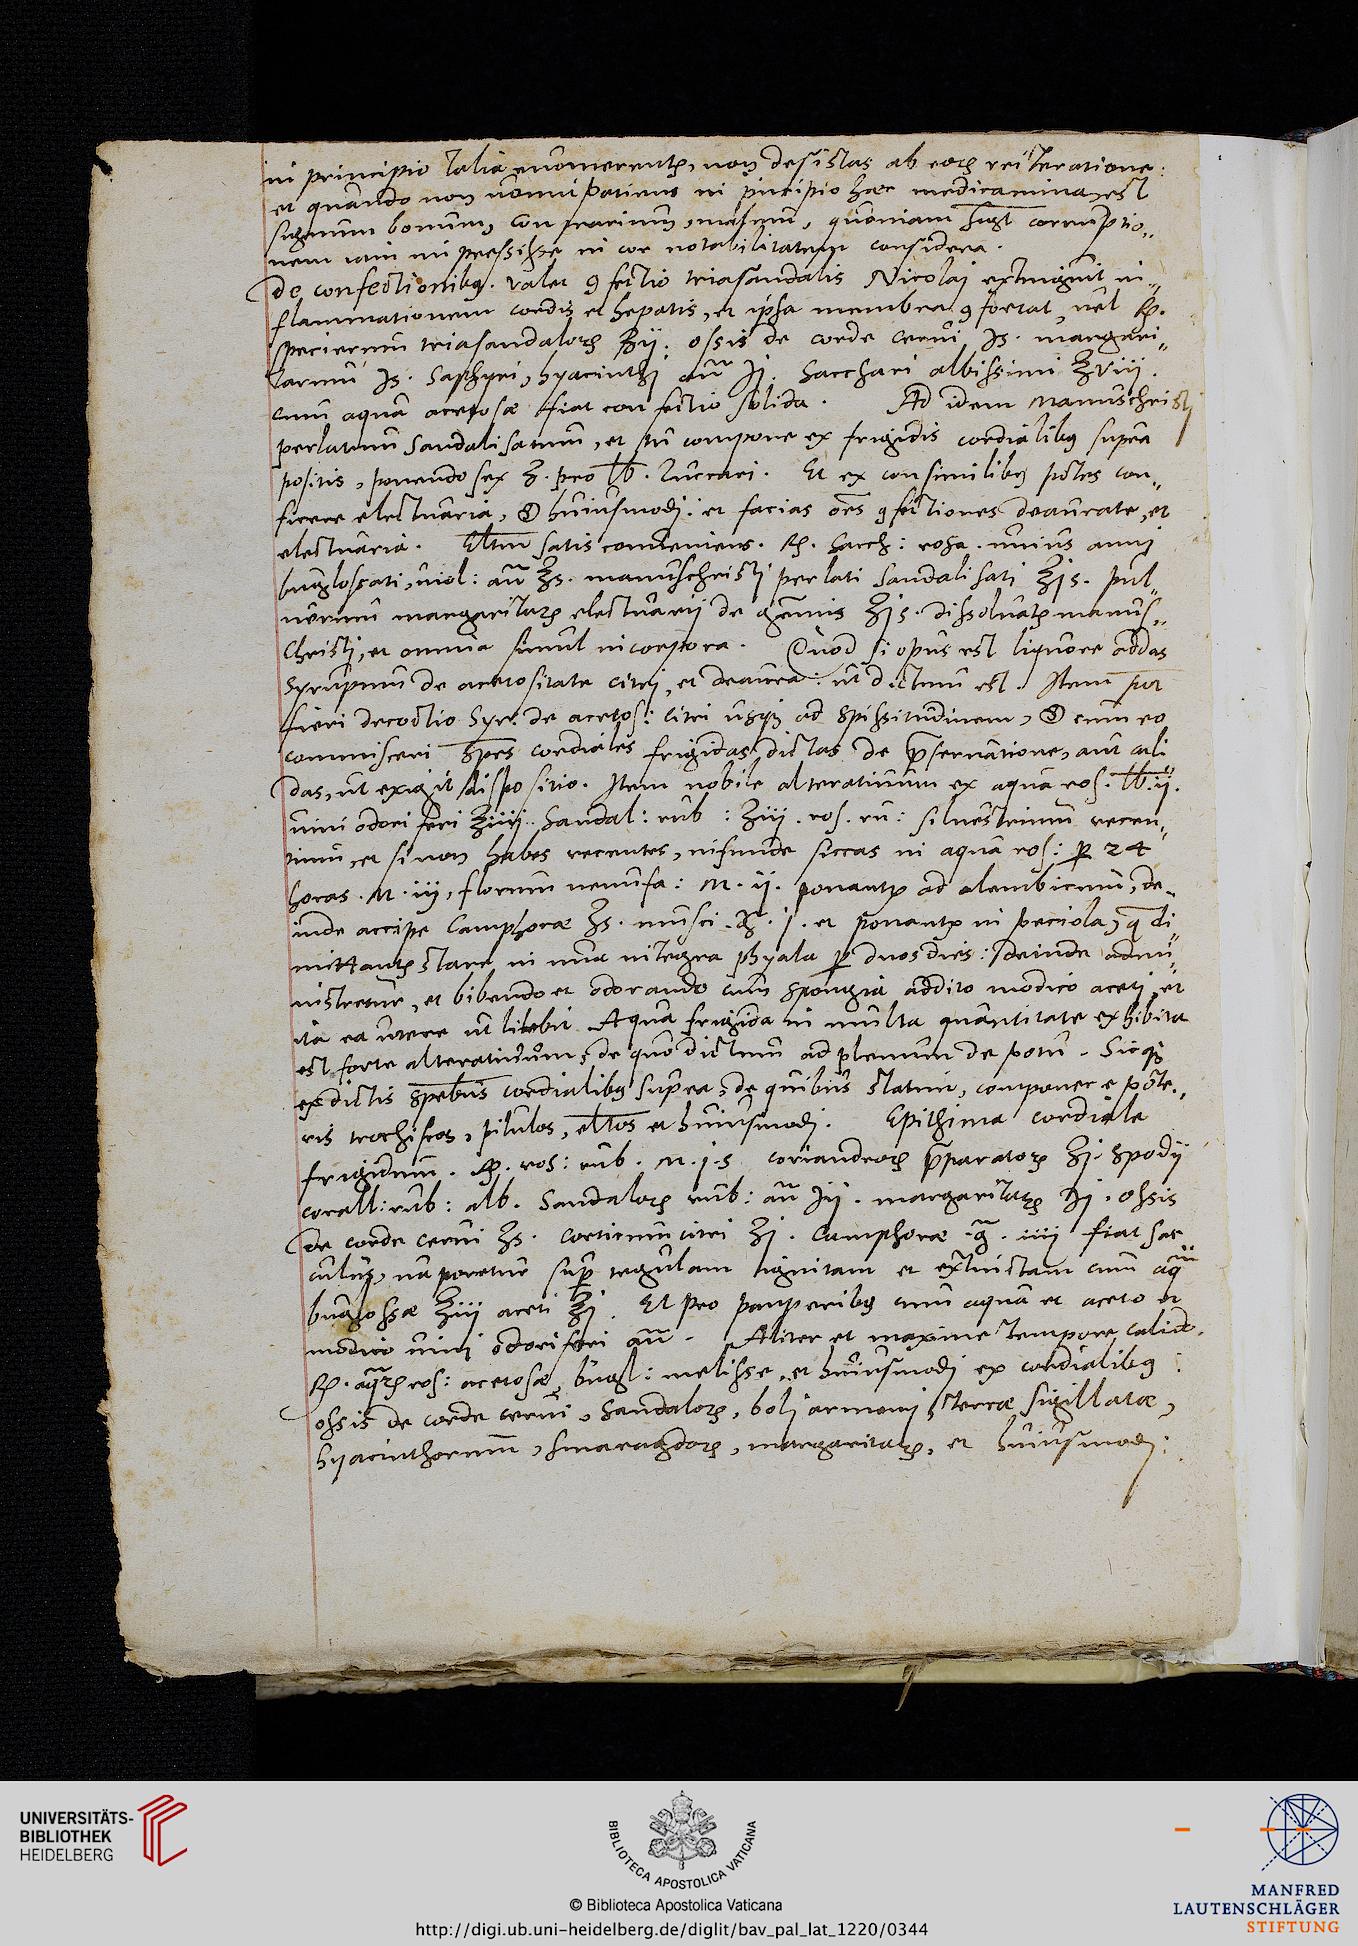 in principio talia evomerentur, non desistas ab eorum reiteratione:
et quando non vomit patiens in principio haec medicamina, est
signum bonum, contrarium, malum, quoniam corruptio„
nem iam impressisse in cor notabilitatem considera.
De confectionibus. valet 9fectio triasandalis Nicolai extinguit in„
flammationem cordis et hepatis, et ipsa membra 9fortat, vel ℞.
specierum triasandalorum ʒij. ossis de corde cervi ℈s. margari„
tarum ℈s. Saphyri, hyacinthi añ ℈j. Sacchari albissimi ℥viij.
cum aqua acetosae fiat confectio solida. Ad idem manus christj
perlatum sandalisatum, et compone ex frigidis cordialibus supra
positis, ponendo sex ʒ. pro lb. Zuccari. Et ex consimilibus potes con„
ficere electuaria, & huiusmodj: et facias oēs 9fectiones deaurate, et
electuaria. Eltm satis conveniens. ℞. Sacch: rosa. unius annj
buglossati, viol: añ ℥s. manuschristj perlati sandalisati ℥js. pul„
verum margaritarum electuarij de gemmis ʒjs. dissolvatur manus„
Christj, et omnia simul incorpora. Quod si opus est liquore addas
Syrupum de acetositate citrj, et deaurea: ut dictum est. Item pot
fieri decoctio Syr: de acetos: citri usque ad spissitudinem, & cum eo
commisceri spēs cordiales frigidas dictas de p̄servatione, aut cali
das, ut exigit dispositio. Item nobile alterativum ex aqua ros. lb. ij.
vini odoriferi ℥iiij. Sandal: rub: ʒiij. ros. ru: silvestrium recen„
tium, et si non habes recentes, infunde siccas in aqua ros: per 24
horas. M. iij, florum nenufa: M. ij. ponantur ad alembicum, de„
inde accipe Camphorae ʒs. musci. g̃. j. et ponantur in peciola, q̄ di
mittantur stare in una integra phyala per duos dies: deinde admi„
nistretur, et bibendo et odorando cum spongia addito modico acetj, et
ita ea utere ut libebit. Aqua frigida in multa quantitate exhibita
est forte alterativum, de quo dictum ad plenum de potu. Sicque
ex dictis spēbus cordialibus supra, de quibus statim, componere pote„
ris trochiscos, pilulas, eltos et huiusmodj. Epithima cordiale
frigidum. ℞. ros: rub. M. j. s. coriandrorum p̄paratorum ʒj. Spodij
corall: rub: alb. Sandalorum rub: añ ℈ij. margaritarum ℈j. ossis
de corde cervi ʒs. corticum citri ʒj. Camphorae g̃. iiij fiat sac„
culus, vaporetur super tegulam ignitam et extinctam cum aqua
buglossae ℥iij aceti ℥j. Et pro pauperibus cum aqua et aceto et
modico vinj odoriferi añ. Aliter et maxime tempore calido.
℞. aquarum ros: acetosae, bugl: melisse, et huiusmodj ex cordialibus:
ossis de corde cervi, Sandalorum, bolj armenj, Terrae sigillatae,
hyacinthorum, smaragdorum, margaritarum, et huiusmodj:
UNIVERSITÄTS-
BIBLIOTHEK
HEIDELBERG
BIBLIOTECA APOSTOLICA VATICANA
© Biblioteca Apostolica Vaticana
http://digi.ub.uni-heidelberg.de/diglit/bav_pal_lat_1220/0344
MANFRED
LAUTENSCHLÄGER
STIFTUNG